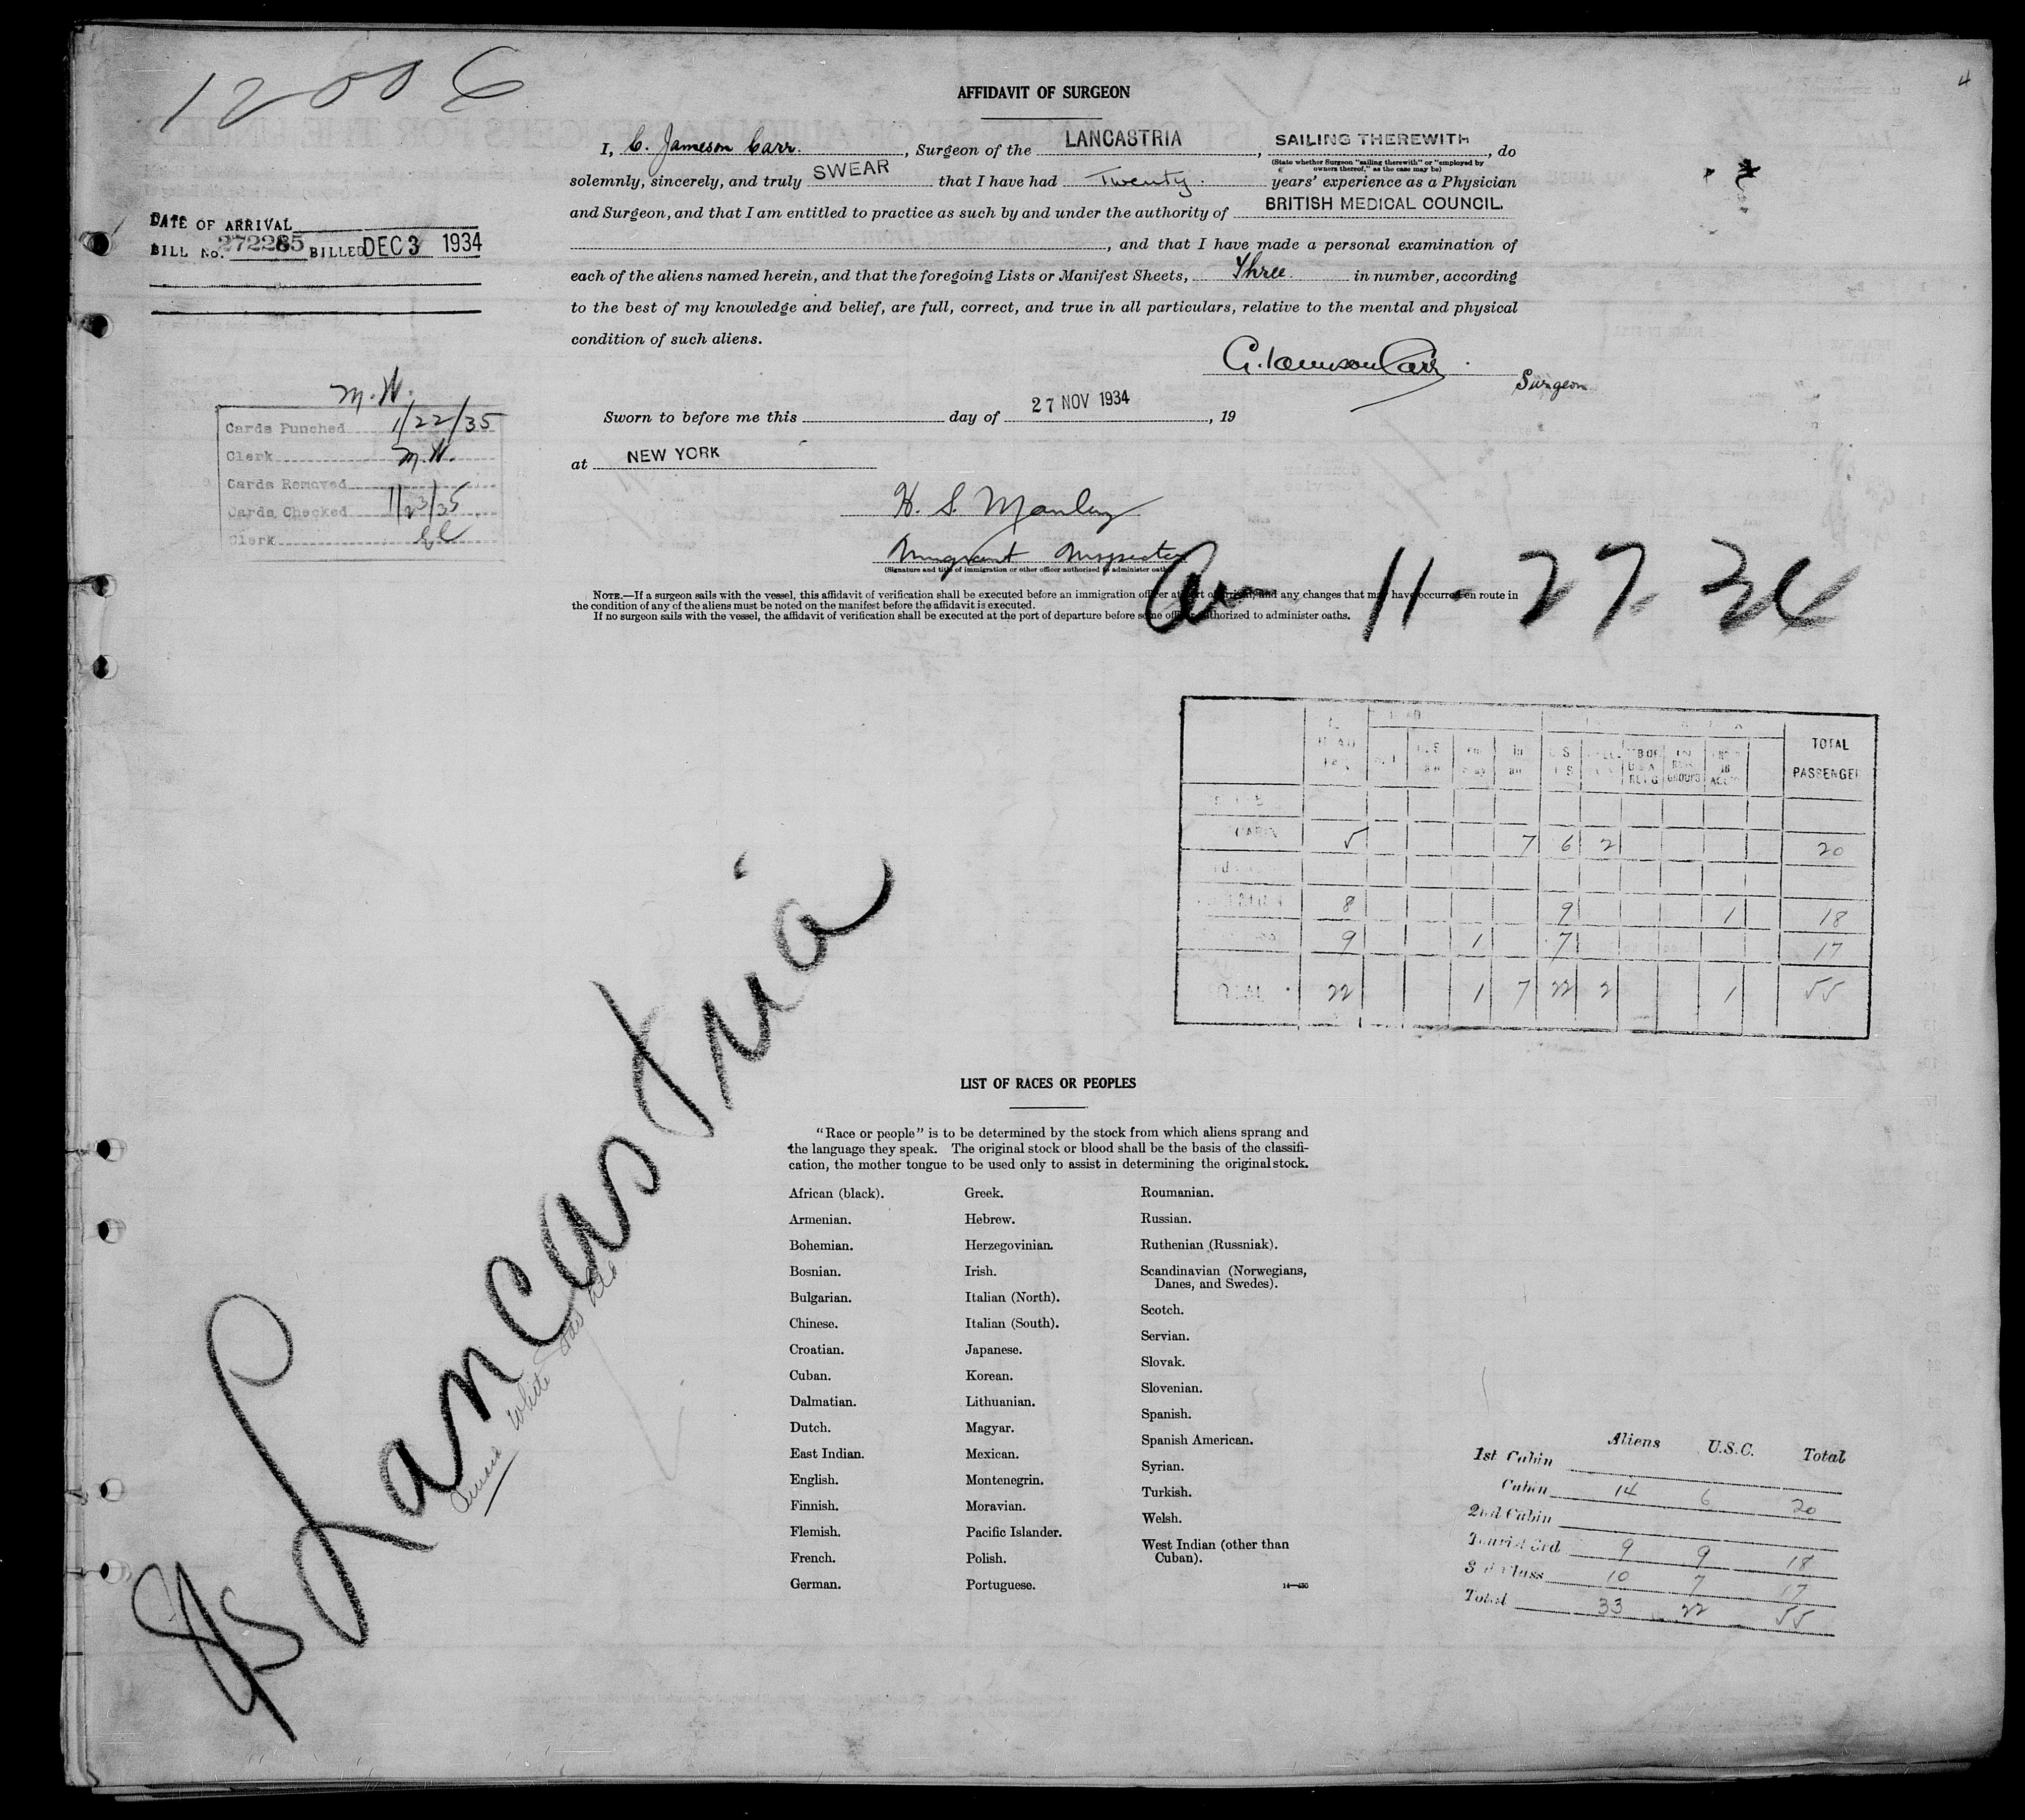 12006
4
AFFIDAVIT OF SURGEON
I, C. Jameson Carr. , Surgeon of the LANCASTRIA , SAILING THEREWITH , do
(State whether Surgeon "sailing therewith" or "employed by
owners thereof," as the case may be)
solemnly, sincerely, and truly SWEAR that I have had Twenty. years' experience as a Physician
and Surgeon, and that I am entitled to practice as such by and under the authority of BRITISH MEDICAL COUNCIL.
, and that I have made a personal examination of
each of the aliens named herein, and that the foregoing Lists or Manifest Sheets, Three. in number, according
to the best of my knowledge and belief, are full, correct, and true in all particulars, relative to the mental and physical
condition of such aliens.
C. Jameson Carr
Surgeon
Sworn to before me this day of 27 NOV 1934 , 19
at NEW YORK
H. S. Manley
Immigrant Inspector
(Signature and title of immigration or other officer authorized to administer oath)
NOTE.—If a surgeon sails with the vessel, this affidavit of verification shall be executed before an immigration officer at port of arrival, and any changes that may have occurred en route in
the condition of any of the aliens must be noted on the manifest before the affidavit is executed.
If no surgeon sails with the vessel, the affidavit of verification shall be executed at the port of departure before some officer authorized to administer oaths.
DATE OF ARRIVAL
BILL No. 272285 BILLED DEC 3 1934
M.W.
Cards Punched 1/22/35
Clerk M.W.
Cards Removed
Cards Checked 1/23/35
Clerk
Arr 11-27-34
TOTAL
PASSENGER
5 7 6 2 20
8 9 1 18
9 1 7 17
TOTAL 22 1 7 22 2 1 55
SS Lancastria
Cunard White Star
LIST OF RACES OR PEOPLES
"Race or people" is to be determined by the stock from which aliens sprang and
the language they speak. The original stock or blood shall be the basis of the classifi-
cation, the mother tongue to be used only to assist in determining the original stock.
African (black).
Armenian.
Bohemian.
Bosnian.
Bulgarian.
Chinese.
Croatian.
Cuban.
Dalmatian.
Dutch.
East Indian.
English.
Finnish.
Flemish.
French.
German.
Greek.
Hebrew.
Herzegovinian.
Irish.
Italian (North).
Italian (South).
Japanese.
Korean.
Lithuanian.
Magyar.
Mexican.
Montenegrin.
Moravian.
Pacific Islander.
Polish.
Portuguese.
Roumanian.
Russian.
Ruthenian (Russniak).
Scandinavian (Norwegians,
Danes, and Swedes).
Scotch.
Servian.
Slovak.
Slovenian.
Spanish.
Spanish American.
Syrian.
Turkish.
Welsh.
West Indian (other than
Cuban).
Aliens U.S.C. Total
1st Cabin
Cabin 14 6 20
2nd Cabin
Tourist 3rd 9 9 18
3rd Class 10 7 17
Total 33 22 55